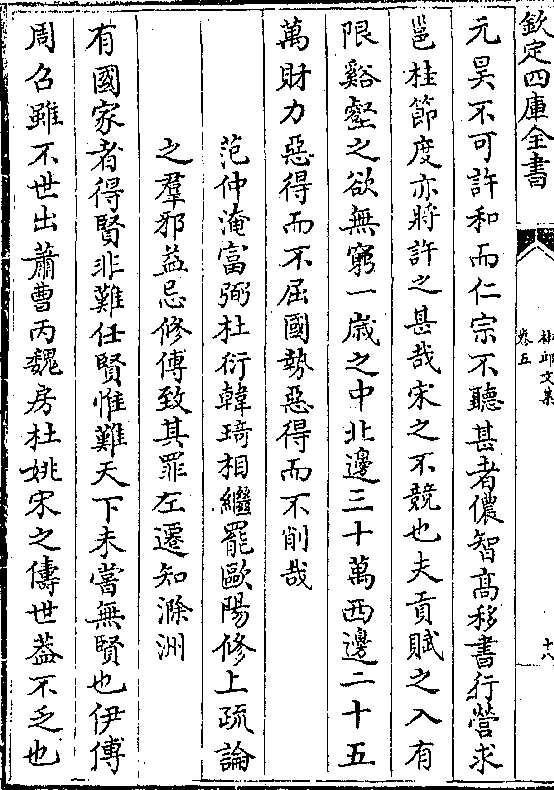 欽定四庫全書
卷五
十八
元昊不可許和而仁宗不聽甚者儂智高移書行營求
邕桂節度亦將許之甚哉宋之不競也夫貢賦之入有
限谿壑之欲無窮一歳之中北邊三十萬西邊二十五
萬財力惡得而不屈國勢惡得而不削哉
范仲淹富弼杜衍韓琦相繼罷歐陽修上疏論
之羣邪益忌修傅致其罪左遷知滁洲
有國家者得賢非難任賢惟難天下未嘗無賢也伊傅
周召雖不世出蕭曹丙魏房杜姚宋之儔世葢不乏也